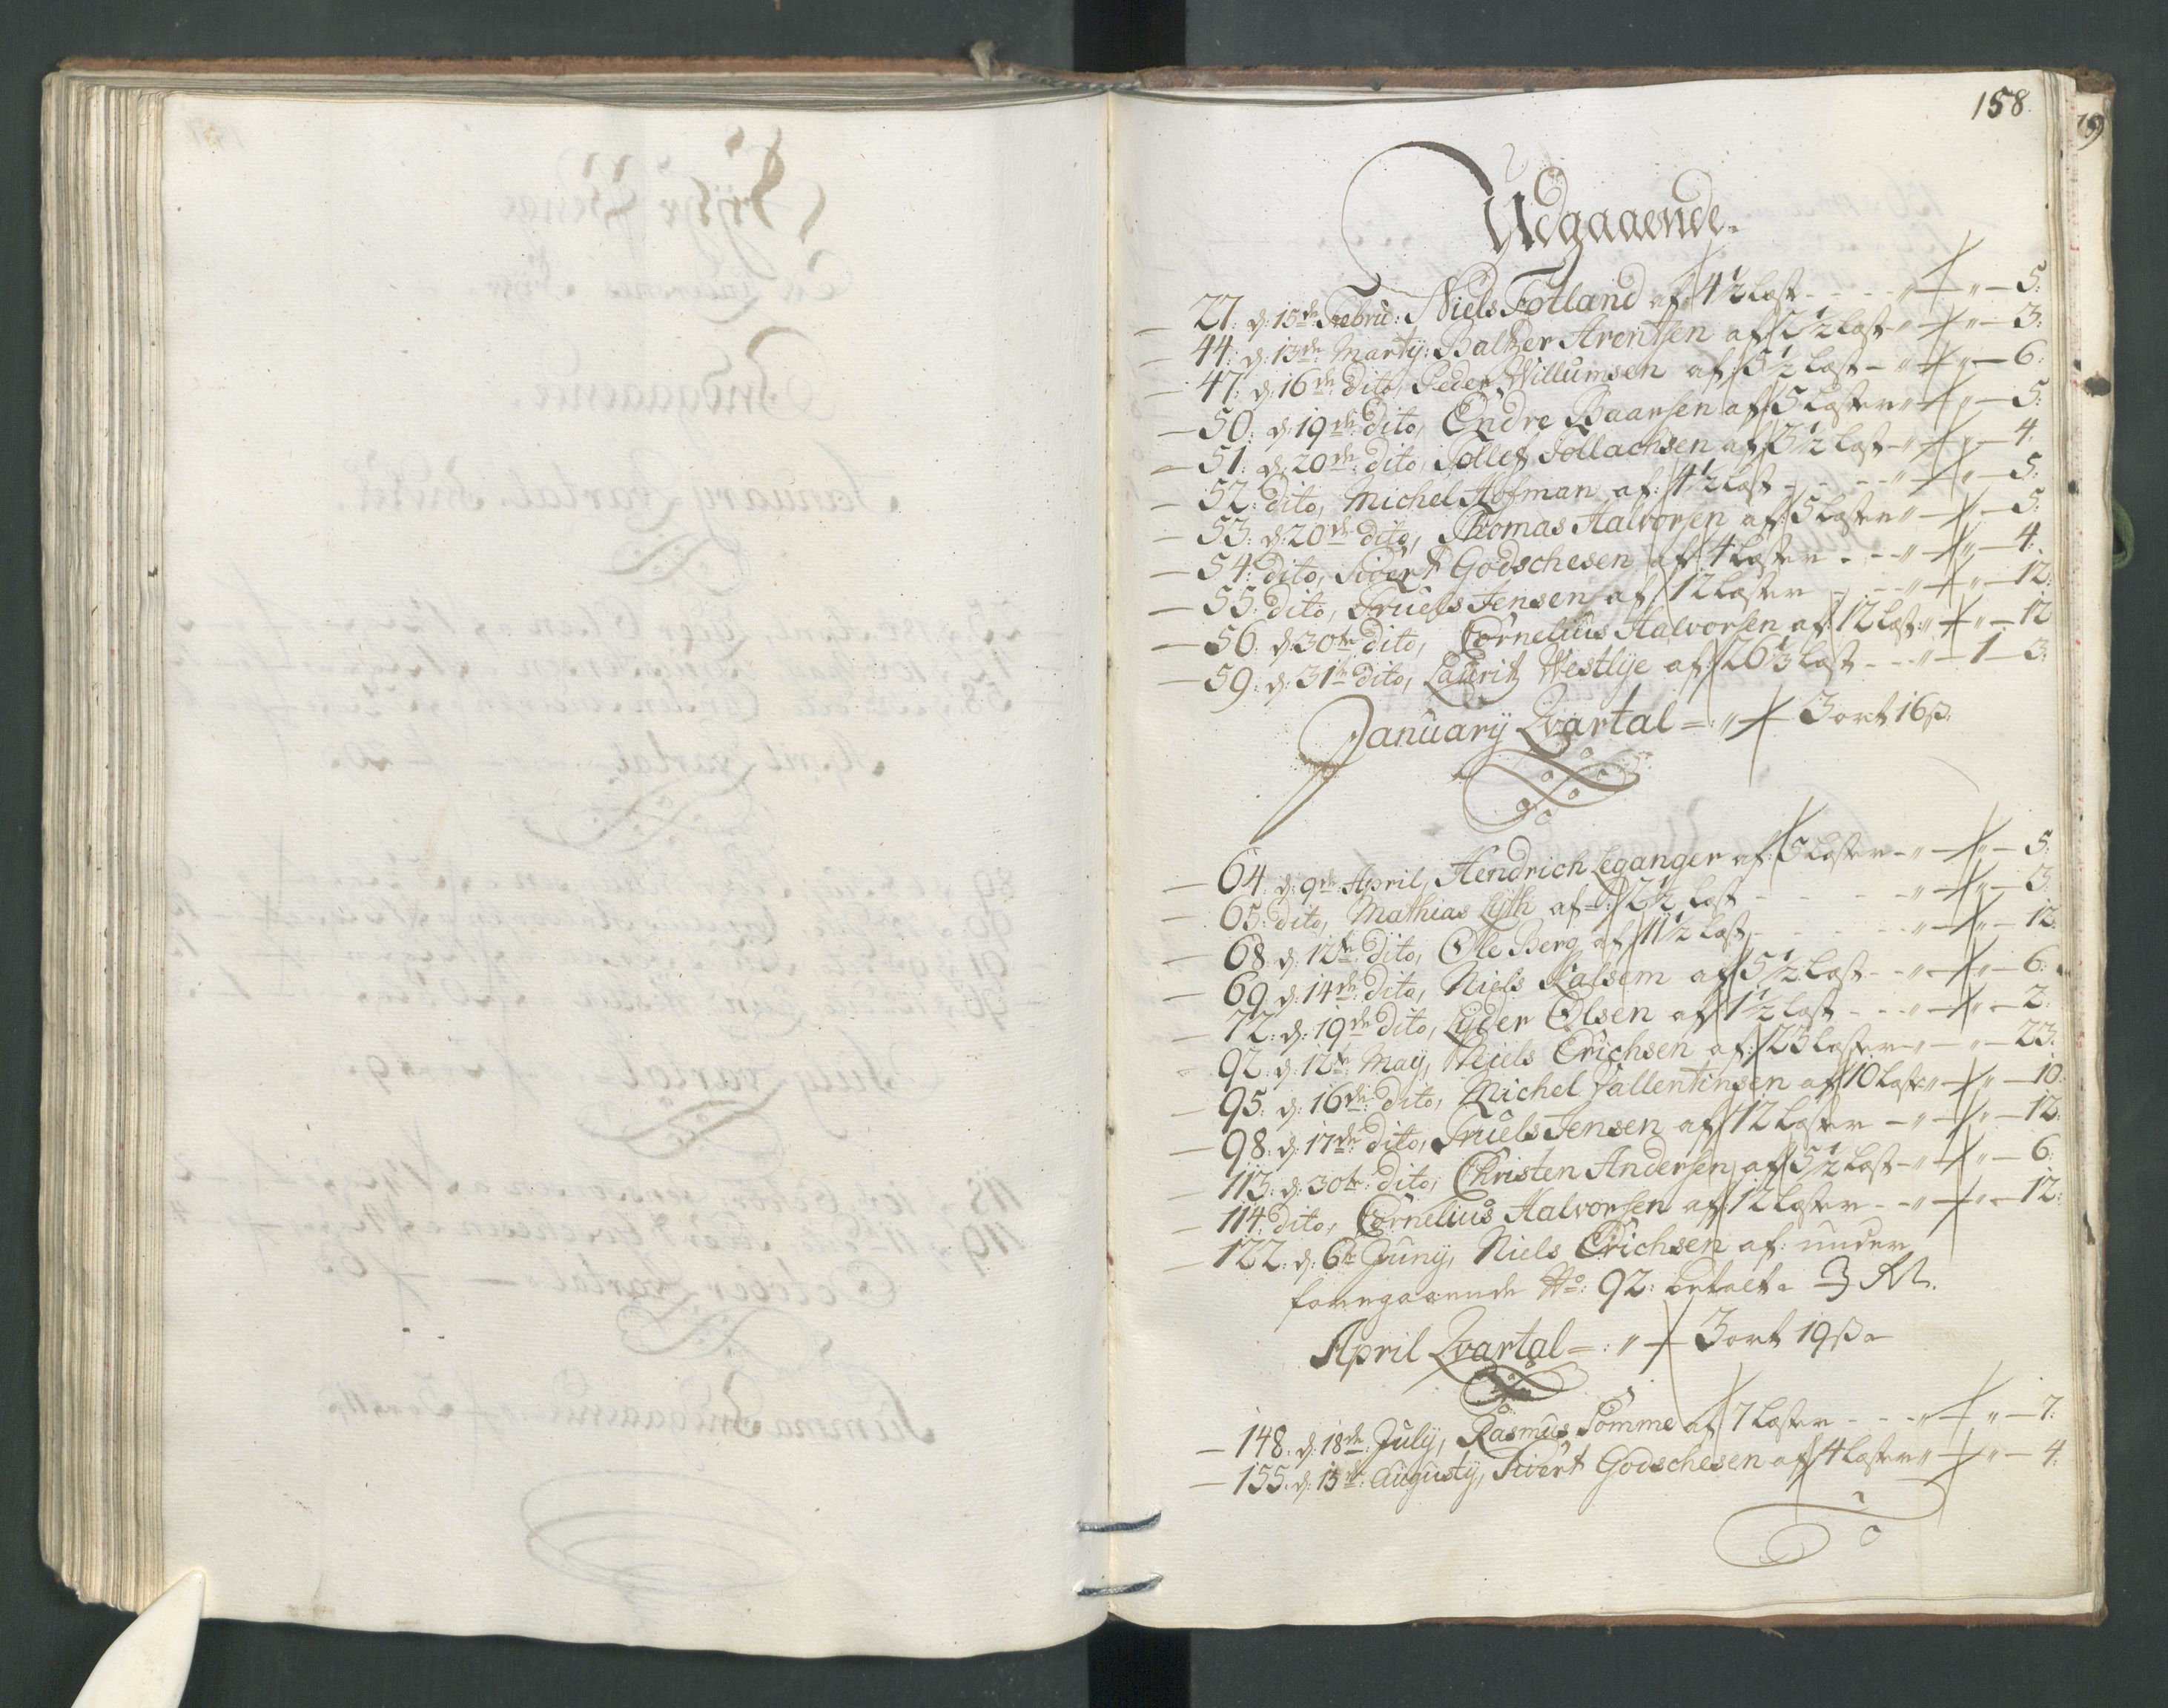 158.
Udgaaende.
— 27: d: 15de Febru: Niels Fotland af 4½ læst - - - " — " — 5:
— 44: d: 13de Marty: Baltzer Arentsen af 2½ læst " — " — 3:
— 47: d: 16de dito, Peder Willumsen af 5½ læst — " — " — 6:
— 50: d: 19de dito, Endre Baarsen af 5 læster " — " — 5:
— 51: d: 20de dito, Tollef Tollachsen af 3½ læst — " — " — 4.
— 52: dito, Michel Hofman af: 4½ læst - - - " — " — 5:
— 53: d: 20de dito, Thomas Halvorsen af: 5 læster " — " — 5:
— 54: dito, Sivert Godschesen af 4 læster - - " — " — 4:
— 55: dito, Truels Jensen af: 12 læster - - " — " — 12:
— 56: d: 30te dito, Cornelius Halvorsen af: 12 læst: " — " — 12
— 59: d: 31te dito, Lauritz Westlye af: 26⅓ læst - - " — 1 — 3:
January Qvartal = : " — 3 ort 16 ß:
— 64: d: 9de April, Hendrich Leganger af: 5 læster - " — " — 5:
— 65: dito, Mathias Lyth af =: 2½ læst - - - " — " — 3:
— 68: d: 12te dito, Ole Berg af 11½ læst - - - " — " — 12:
— 69: d: 14de dito, Niels Kalsem af 5½ læst - - " — " — 6:
— 72: d: 19de dito, Lyder Olsen af 1½ læst - - - " — " — 2:
92: d: 12te May, Niels Erichsen af: 23 læster - " — " — 23:
— 95: d: 16de dito, Michel Fallentinsen af 10 læst: " — " — 10:
— 98: d: 17de dito, Truels Jensen af 12 læster — " — " — 12:
— 113: d: 30te dito, Christen Andersen af 5½ læst - " — " — 6:
— 114: dito, Cornelius Halvorsen af 12 læster - - " — " — 12:
— 122: d: 6te Juny, Niels Erichsen af: under
foregaaende No: 92: betalt
April Qvartal = : " — 3 ort 19 ß
— 148: d: 18de July, Rasmus Somme af 7 læster - - - " — " — 7:
— 155: d: 15de Augusty, Sivert Godschesen af 4 læster " — " — 4: